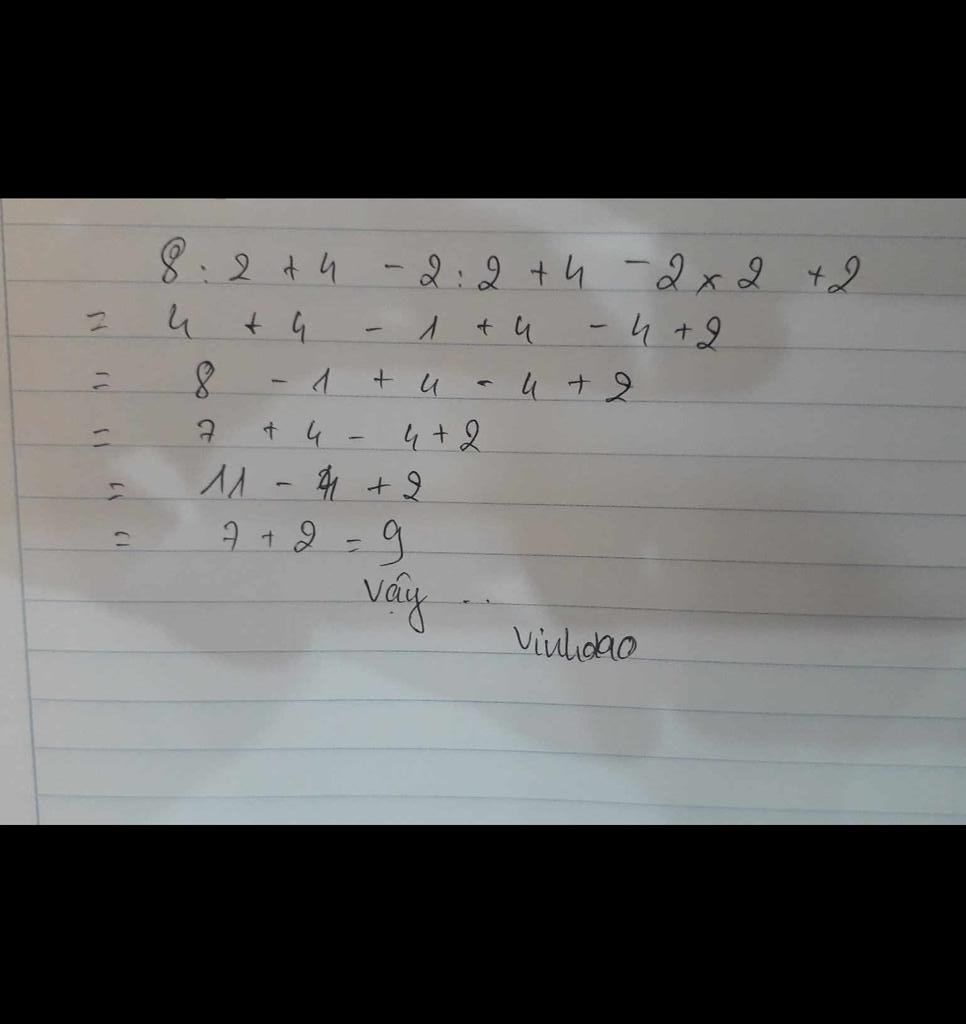 8 : 2 + 4 - 2 : 2 + 4 - 2 x 2 + 2
= 4 + 4 - 1 + 4 - 4 + 2
= 8 - 1 + 4 - 4 + 2
= 7 + 4 - 4 + 2
= 11 - 4 + 2
= 7 + 2 = 9
Vậy ..
Vinhdao